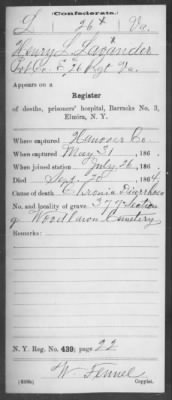 Confederate.
L 26 Va.
Henry L. Lavander
Pvt Co. F 26 Rgt Va.
Appears on a
Register
of deaths, prisoners' hospital, Barracks No. 3,
Elmira, N. Y.
Where captured Hanover Co
When captured May 31, 186
When joined station July 26, 186
Died Sept. 20, 1864.
Cause of death Chronic Diarrhoea
No. and locality of grave 377 Section
of Woodlawn Cemetery
Remarks:
N. Y. Reg. No. 439; page 22
W. Fennel
Copyist.